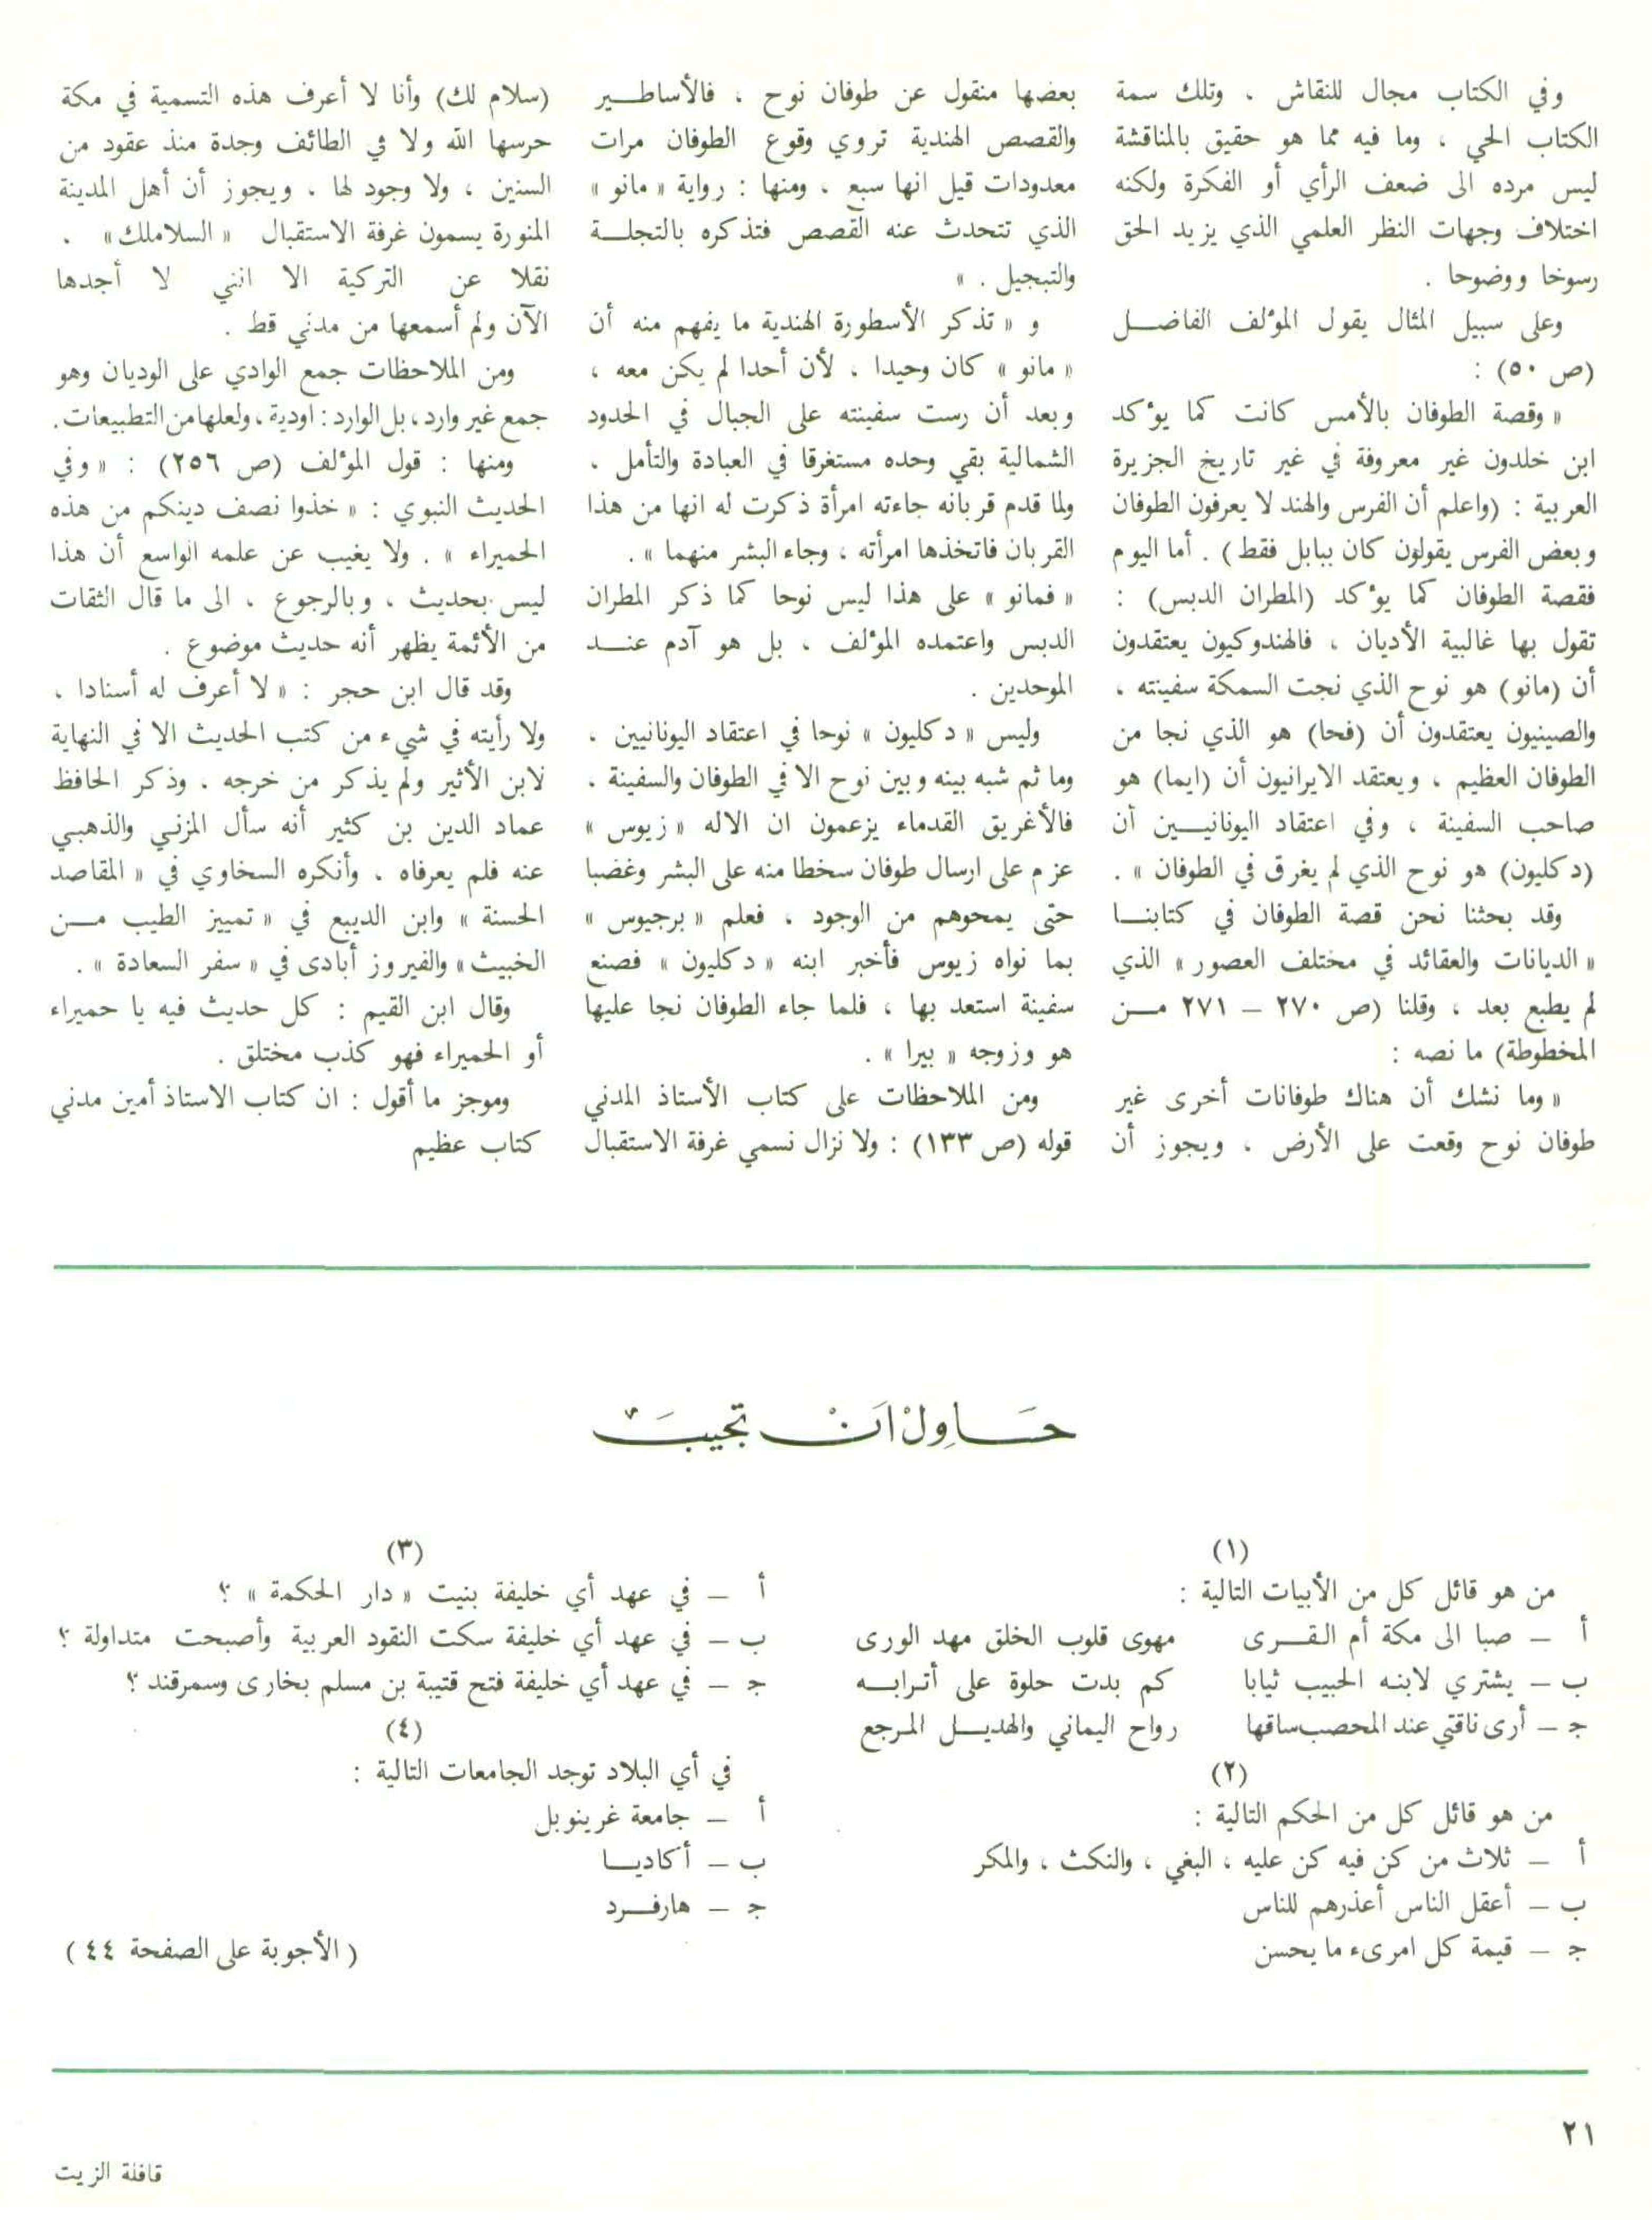 وفي الكتاب مجال للنقاش ، وتلك سمة
الكتاب الحي ، وما فيه مما هو حقيق بالمناقشة
ليس مرده الى ضعف الرأي أو الفكرة ولكنه
اختلاف وجهات النظر العلمي الذي يزيد الحق
رسوخا ووضوحا .
وعلى سبيل المثال يقول المؤلف الفاضل
(ص ٥٠) :
« وقصة الطوفان بالأمس كانت كما يؤكد
ابن خلدون غير معروفة في غير تاريخ الجزيرة
العربية : (واعلم أن الفرس والهند لا يعرفون الطوفان
وبعض الفرس يقولون كان ببابل فقط) . أما اليوم
فقصة الطوفان كما يؤكد (المطران الدبس) :
تقول بها غالبية الأديان ، فالهندوكيون يعتقدون
أن (مانو) هو نوح الذي نجت السمكة سفينته ،
والصينيون يعتقدون أن (فحا) هو الذي نجا من
الطوفان العظيم ، ويعتقد الايرانيون أن (ايما) هو
صاحب السفينة ، وفي اعتقاد اليونانيين أن
(دكليون) هو نوح الذي لم يغرق في الطوفان » .
وقد بحثنا نحن قصة الطوفان في كتابنا
« الديانات والعقائد في مختلف العصور » الذي
لم يطبع بعد ، وقلنا (ص ٢٧٠ – ٢٧١ من
المخطوطة) ما نصه :
« وما نشك أن هناك طوفانات أخرى غير
طوفان نوح وقعت على الأرض ، ويجوز أن
بعضها منقول عن طوفان نوح ، فالأساطير
والقصص الهندية تروي وقوع الطوفان مرات
معدودات قيل انها سبع ، ومنها : رواية « مانو »
الذي تتحدث عنه القصص فتذكره بالتجلة
والتبجيل . »
و « تذكر الأسطورة الهندية ما يفهم منه أن
« مانو » كان وحيدا ، لأن أحدا لم يكن معه ،
وبعد أن رست سفينته على الجبال في الحدود
الشمالية بقي وحده مستغرقا في العبادة والتأمل ،
ولما قدم قربانه جاءته امرأة ذكرت له انها من هذا
القربان فاتخذها امرأته ، وجاء البشر منهما » .
« فمانو » على هذا ليس نوحا كما ذكر المطران
الدبس واعتمده المؤلف ، بل هو آدم عند
الموحدين .
وليس « دكليون » نوحا في اعتقاد اليونانيين ،
وما ثم شبه بينه وبين نوح الا في الطوفان والسفينة .
فالأغريق القدماء يزعمون ان الاله « زيوس »
عزم على ارسال طوفان سخطا منه على البشر وغضبا
حتى يمحوهم من الوجود ، فعلم « برجيوس »
بما نواه زيوس فأخبر ابنه « دكليون » فصنع
سفينة استعد بها ، فلما جاء الطوفان نجا عليها
هو وزوجه « بيرا » .
ومن الملاحظات على كتاب الأستاذ المدني
قوله (ص ١٣٣) : ولا نزال نسمي غرفة الاستقبال
(سلام لك) وأنا لا أعرف هذه التسمية في مكة
حرسها الله ولا في الطائف وجدة منذ عقود من
السنين ، ولا وجود لها ، ويجوز أن أهل المدينة
المنورة يسمون غرفة الاستقبال « السلاملك » .
نقلا عن التركية الا انني لا أجدها
الآن ولم أسمعها من مدني قط .
ومن الملاحظات جمع الوادي على الوديان وهو
جمع غير وارد ، بل الوارد : اودية ، ولعلها من التطبيعات .
ومنها : قول المؤلف (ص ٢٥٦) : « وفي
الحديث النبوي : « خذوا نصف دينكم من هذه
الحميراء » . ولا يغيب عن علمه الواسع أن هذا
ليس بحديث ، وبالرجوع ، الى ما قال الثقات
من الأئمة يظهر أنه حديث موضوع .
وقد قال ابن حجر : « لا أعرف له أسنادا ،
ولا رأيته في شيء من كتب الحديث الا في النهاية
لابن الأثير ولم يذكر من خرجه . وذكر الحافظ
عماد الدين بن كثير أنه سأل المزني والذهبي
عنه فلم يعرفاه ، وأنكره السخاوي في « المقاصد
الحسنة » وابن الديبع في « تمييز الطيب من
الخبيث » والفيروز أبادى في « سفر السعادة » .
وقال ابن القيم : كل حديث فيه يا حميراء
أو الحميراء فهو كذب مختلق .
وموجز ما أقول : ان كتاب الاستاذ أمين مدني
كتاب عظيم
حَاوِلْ اَنْ تجيبَ
(١)
من هو قائل كل من الأبيات التالية :
أ – صبا الى مكة أم القرى مهوى قلوب الخلق مهد الورى
ب – يشتري لابنه الحبيب ثيابا كم بدت حلوة على أترابه
ج – أرى ناقتي عند المحصب ساقها رواح اليماني والهديل المرجع
(٢)
من هو قائل كل من الحكم التالية :
أ – ثلاث من كن فيه كن عليه ، البغي ، والنكث ، والمكر
ب – أعقل الناس أعذرهم للناس
ج – قيمة كل امرىء ما يحسن
(٣)
أ – في عهد أي خليفة بنيت « دار الحكمة » ؟
ب – في عهد أي خليفة سكت النقود العربية وأصبحت متداولة ؟
ج – في عهد أي خليفة فتح قتيبة بن مسلم بخارى وسمرقند ؟
(٤)
في أي البلاد توجد الجامعات التالية :
أ – جامعة غرينوبل
ب – أكاديا
ج – هارفرد
( الأجوبة على الصفحة ٤٤ )
٢١
قافلة الزيت